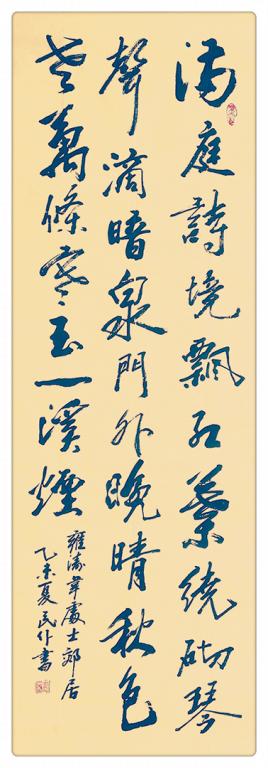 滿庭詩境飄紅葉繞砌琴
聲滴暗泉門外晚晴秋色
老萬條寒玉一溪煙
雍陶韋處士郊居
乙未夏民仆書